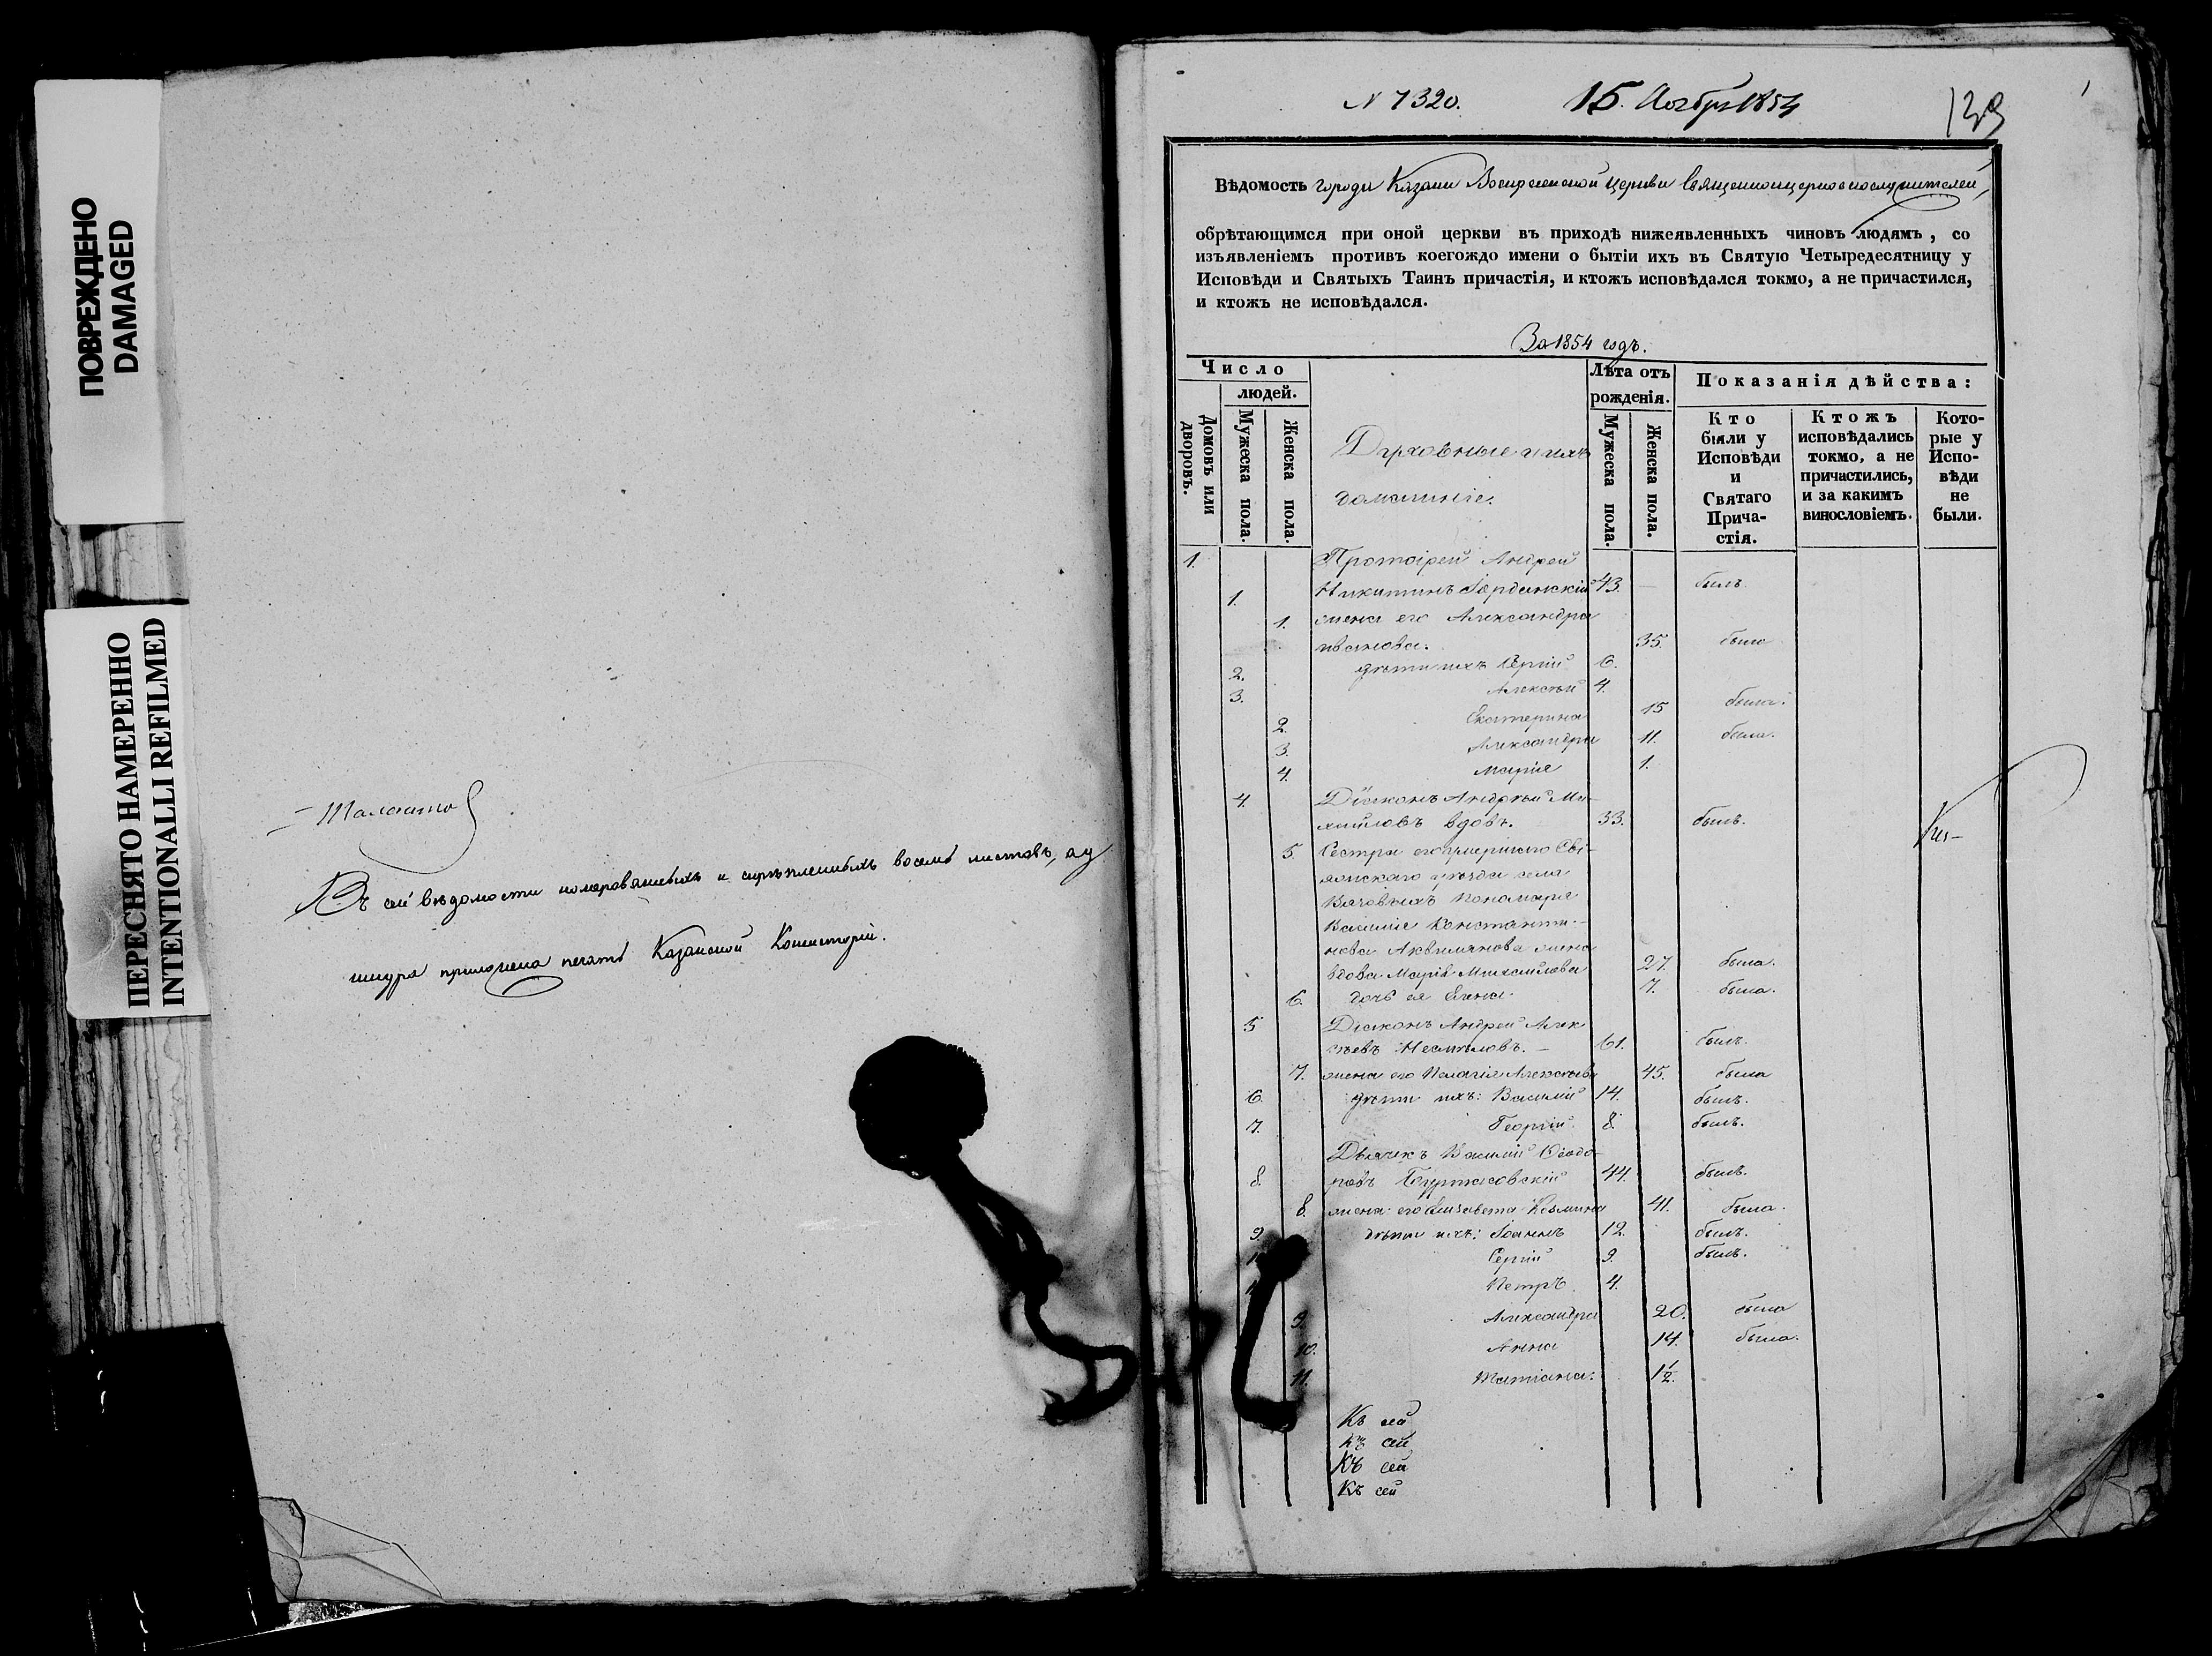 ПОВРЕЖДЕНО
DAMAGED
ПЕРЕСНЯТО НАМЕРЕННО
INTENTIONALLI REFILMED
Въ сей вѣдомости номерованныхъ и скрѣпленныхъ восемь листовъ, а у
шнура приложена печать Казанской Консисторіи.
N 7320. 15 Ноября 1854
139
Вѣдомость города Казани Воскресенской церкви Священноцерковнослужителей,
обрѣтающимся при оной церкви въ приходѣ нижеявленныхъ чиновъ людямъ, со
изъявленіемъ противъ коегождо имени о бытіи ихъ въ Святую Четыредесятницу у
Исповѣди и Святыхъ Таинъ причастія, и ктожъ исповѣдался токмо, а не причастился,
и ктожъ не исповѣдался.
За 1854 годъ.
Число
людей.
Домовъ или дворовъ.
Мужеска пола.
Женска пола.
Духовные и ихъ
домашніе.
Лѣта отъ
рожденія.
Мужеска пола.
Женска пола.
Показанія дѣйства:
Кто
были у
Исповѣди
и
Святаго
Прича-
стія.
Ктожъ
исповѣдались
токмо, а не
причастились,
и за какимъ
винословіемъ.
Кото-
рые у
Испо-
вѣди
не
были.
1. Протоіерей Андрей
1. Никитинъ Іорданскій 43. — былъ.
1. жена его Александра
иванова. 35. была
2. дѣти ихъ Сергій 6.
3. Алексѣй 4.
2. Екатерина 15 была.
3. Александра 11. была.
4. Марія 1.
4. Діаконъ Андрей Ми-
хайловъ вдовъ. 33. былъ.
5. Сестра его умершаго Сві-
яжскаго уѣзда села
пономаря
Василія Константи-
нова Аквилянова жена
вдова Марія Михайлова 27. была.
6. дочь ея Елена. 7. была.
5 Діаконъ Андрей Алек
сѣевъ Несмѣловъ. — 61. былъ.
7. жена его Пелагія Алексѣева 45. была
6. дѣти ихъ: Василій 14. былъ.
7. Георгій 8. былъ.
Дьячекъ Василій Ѳеодо
8. ровъ Буртасовскій 44. былъ.
8. жена его Елизавета Козмина 41. была.
9. дѣти ихъ: Іоаннъ 12. былъ.
Сергій 9. былъ.
Петръ 4.
9. Александра 20. была
10. Анна 14. была.
11. Татіана. 1½.
Къ сей
Къ сей
Къ сей
Къ сей